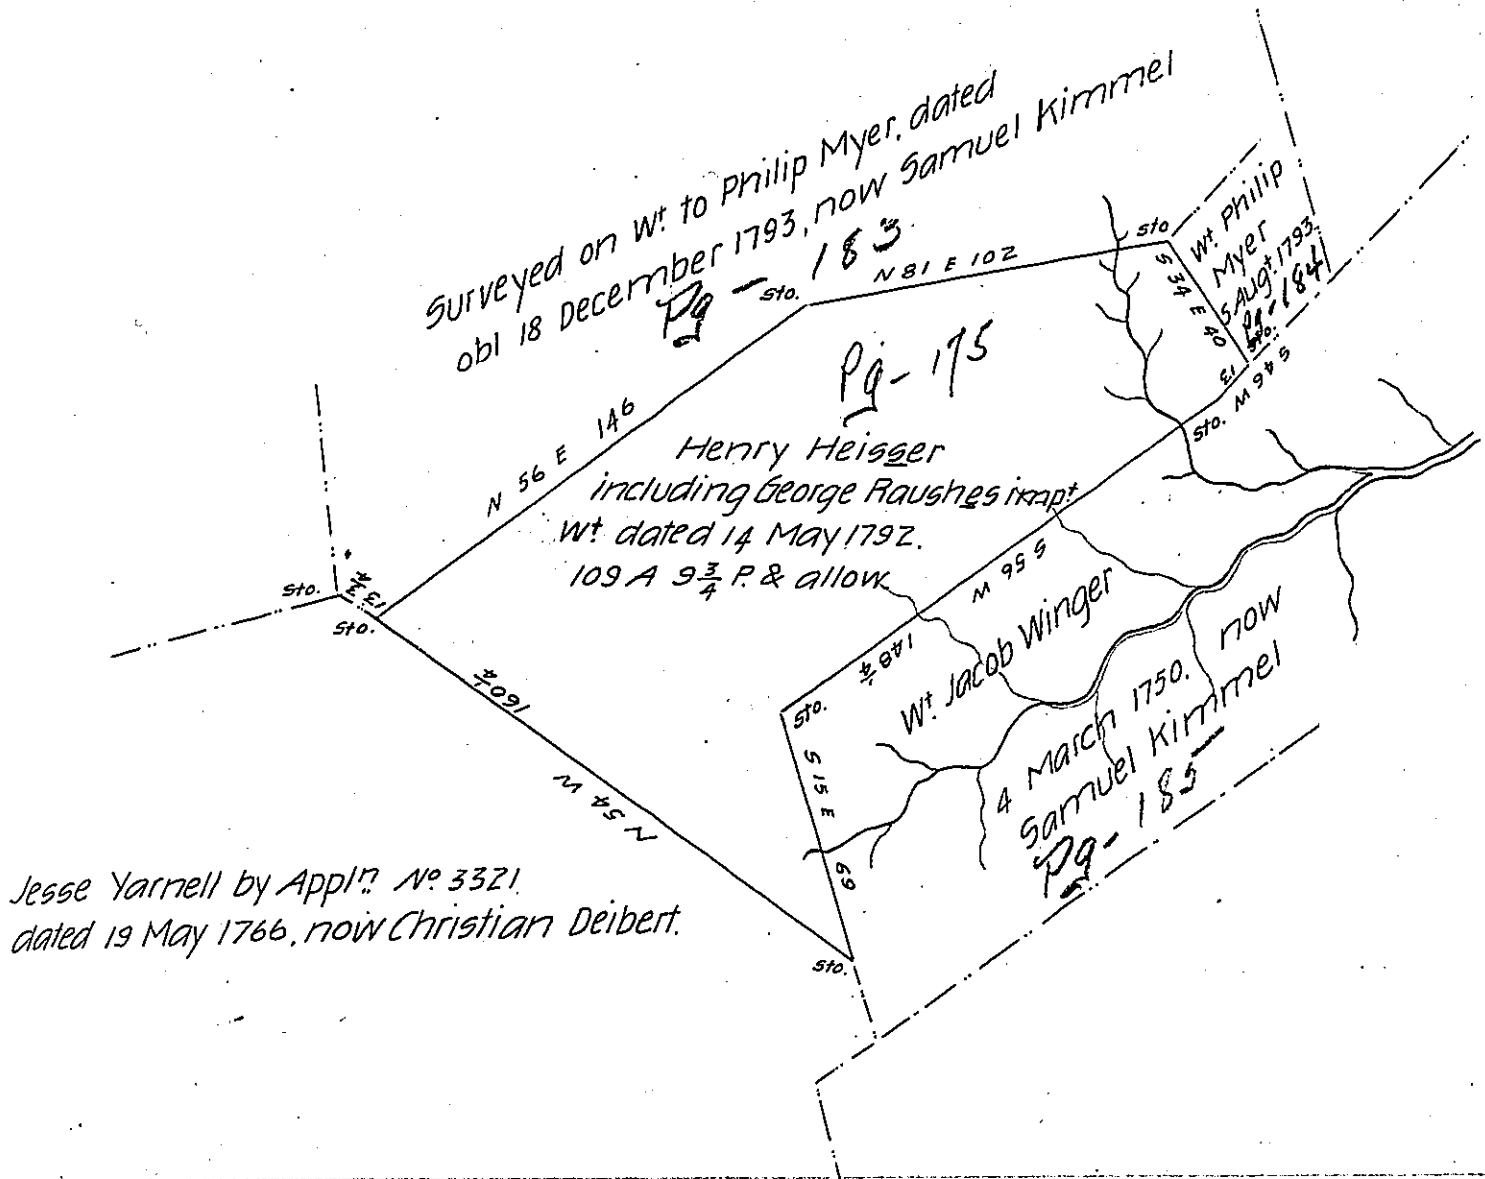 Surveyed on Wt. to Philip Myer, dated
obl 18 December 1793, now Samuel Kimmel
Pg - 183
Sto.
N 81 E 102
Sto
Wt. Philip
Myer
5 Augt. 1793.
Pg - 184
S 34 E 40
Sto.
13
S 46 W
Sto.
N 56 E 146
Pg - 175
Henry Heisser
including George Raushes impt
Wt dated 14 May 1792.
109 A 9 3/4 P. & allow
S 56 W
148 1/4
Sto.
13 3/4
Sto.
Sto.
160 1/4
N 54 W
Sto.
S 15 E
69
Wt. Jacob Winger
4 March 1750. now
Samuel Kimmel
Pg - 185
Jesse Yarnell by Appln. No 3321
dated 19 May 1766, now Christian Deibert.
Sto.